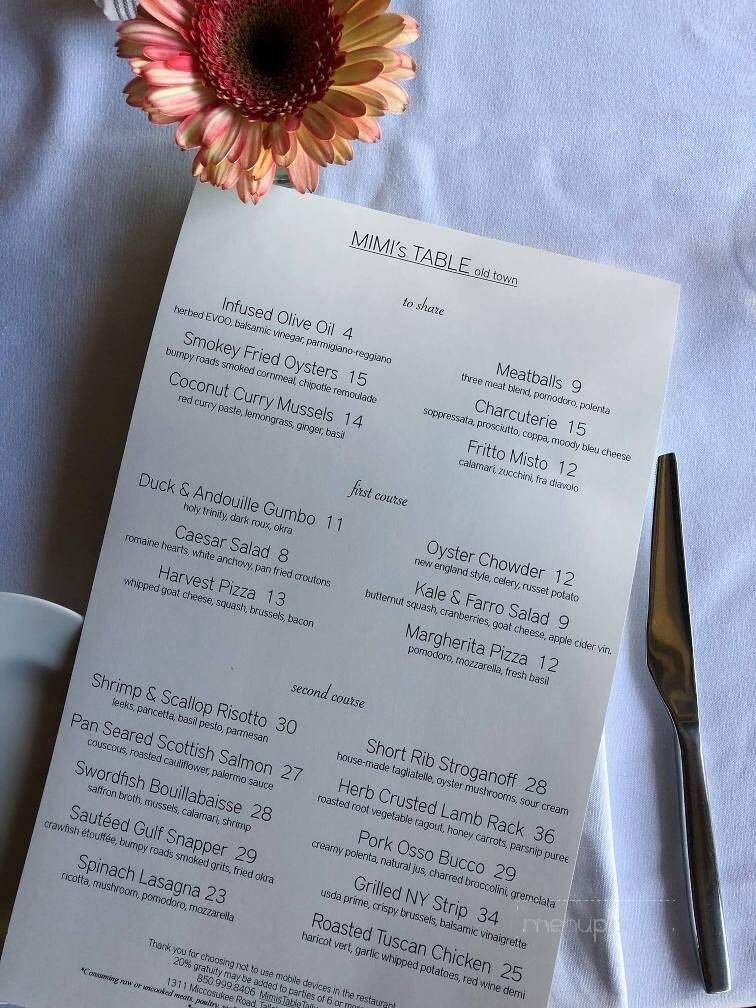 MIMI's TABLE old town
to share
Infused Olive Oil 4
herbed EVOO, balsamic vinegar, parmigiano-reggiano
Smokey Fried Oysters 15
bumpy roads smoked cornmeal, chipotle remoulade
Coconut Curry Mussels 14
red curry paste, lemongrass, ginger, basil
Meatballs 9
three meat blend, pomodoro, polenta
Charcuterie 15
soppressata, prosciutto, coppa, moody bleu cheese
Fritto Misto 12
calamari, zucchini, fra diavolo
first course
Duck & Andouille Gumbo 11
holy trinity, dark roux, okra
Caesar Salad 8
romaine hearts, white anchovy, pan fried croutons
Harvest Pizza 13
whipped goat cheese, squash, brussels, bacon
Oyster Chowder 12
new england style, celery, russet potato
Kale & Farro Salad 9
butternut squash, cranberries, goat cheese, apple cider vin.
Margherita Pizza 12
pomodoro, mozzarella, fresh basil
second course
Shrimp & Scallop Risotto 30
leeks, pancetta, basil pesto, parmesan
Pan Seared Scottish Salmon 27
couscous, roasted cauliflower, palermo sauce
Swordfish Bouillabaisse 28
saffron broth, mussels, calamari, shrimp
Sautéed Gulf Snapper 29
crawfish étouffée, bumpy roads smoked grits, fried okra
Spinach Lasagna 23
ricotta, mushroom, pomodoro, mozzarella
Short Rib Stroganoff 28
house-made tagliatelle, oyster mushrooms, sour cream
Herb Crusted Lamb Rack 36
roasted root vegetable ragout, honey carrots, parsnip puree
Pork Osso Bucco 29
creamy polenta, natural jus, charred broccolini, gremolata
Grilled NY Strip 34
usda prime, crispy brussels, balsamic vinaigrette
Roasted Tuscan Chicken 25
haricot vert, garlic whipped potatoes, red wine demi
Thank you for choosing not to use mobile devices in the restaurant
20% gratuity may be added to parties of 6 or more
850.999.8406
1311 Miccosukee Road,
*Consuming raw or uncooked meats, poultry,